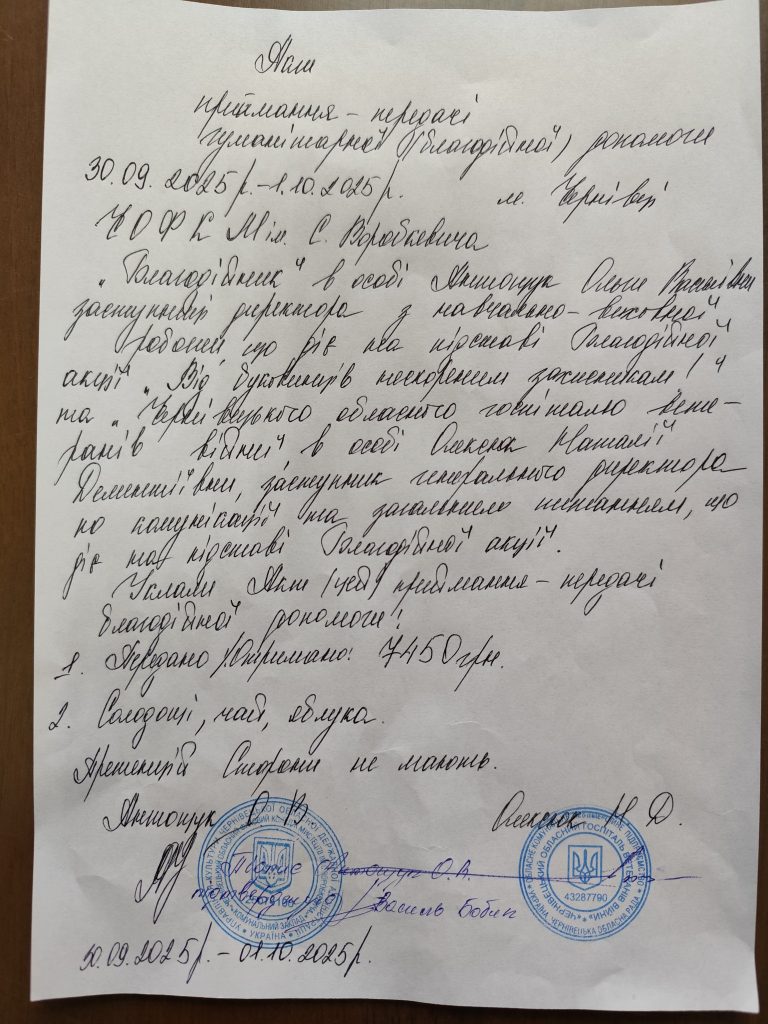 Акт
приймання – передачі
гуманітарної (благодійної) допомоги
30.09.2025р. – 1.10.2025р. м. Чернівці
ЧОФКМ ім. С. Воробкевича
„Благодійник" в особі Антощук Ольги Василівни
заступник директора з навчально-виховної
роботи, що діє на підставі Благодійної
акції „Від буковинців нескореним захисникам!"
та „Чернівецького обласного госпіталю вете-
ранів війни" в особі Олексюк Наталії
Дементіївни, заступник генерального директора
по комунікації та загальним питанням, що
діє на підставі Благодійної акції.
Уклали Акт (цей) приймання – передачі
благодійної допомоги:
1. Передано/Отримано: 7450 грн.
2. Солодощі, чай, яблука.
Претензій Сторони не мають.
Антощук О В Олексюк Н. Д.
Підпис Антощук О.В.
підтверджую Василь Бобик
43287790
УКРАЇНА
30.09.2025р. – 01.10.2025р.